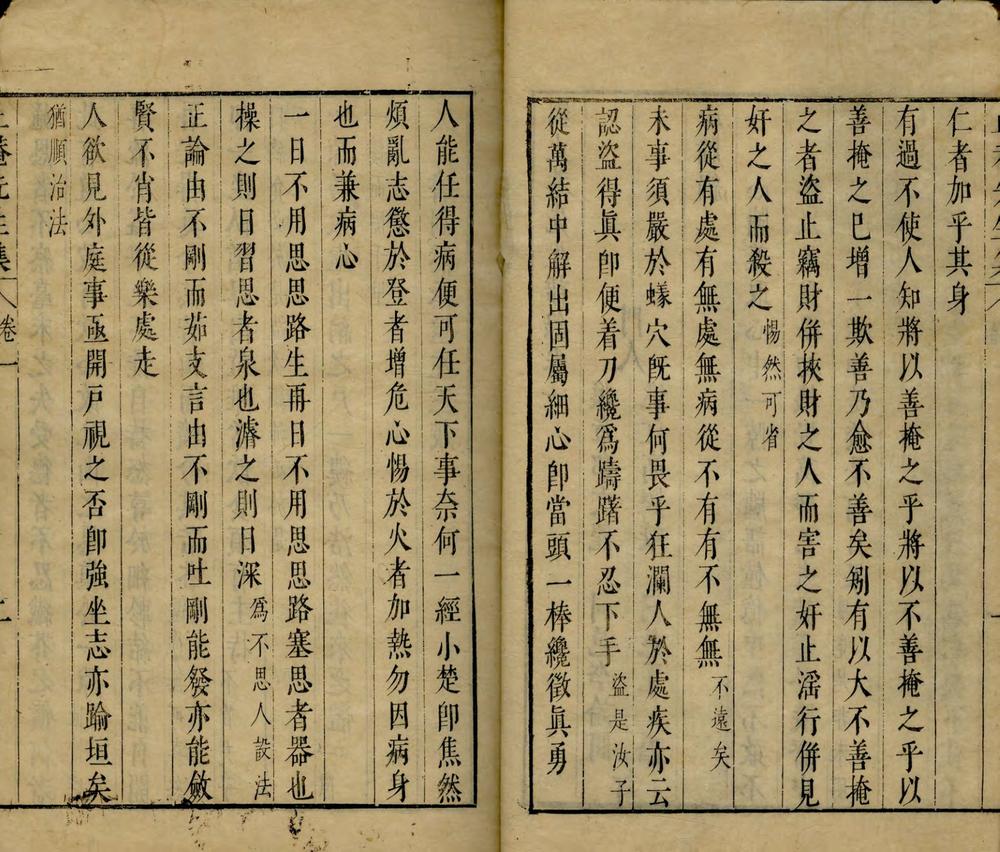 仁者加乎其身
有過不使人知將以善掩之乎將以不善掩之乎以
善掩之已增一欺善乃愈不善矣矧有以大不善掩
之者盜止竊財併挾財之人而害之奸止滛行併見
奸之人而殺之惕然可省
病從有處有無處無病從不有有不無無不遠矣
未事須嚴於蟻穴既事何畏乎狂瀾人於處疾亦云
認盜得眞卽便着刀纔爲躊躇不忍下手盜是汝子
從萬結中解出固屬細心卽當頭一棒纔徵眞勇
人能任得病便可任天下事奈何一經小楚卽焦然
煩亂志懲於登者增危心惕於火者加熱勿因病身
也而兼病心
一日不用思思路生再日不用思思路塞思者器也
操之則日習思者泉也濬之則日深爲不思人設法
正論由不剛而茹支言由不剛而吐剛能發亦能斂
賢不肖皆從樂處走
人欲見外庭事亟開戸視之否卽強坐志亦踰垣矣
猶順治法
卷一
二